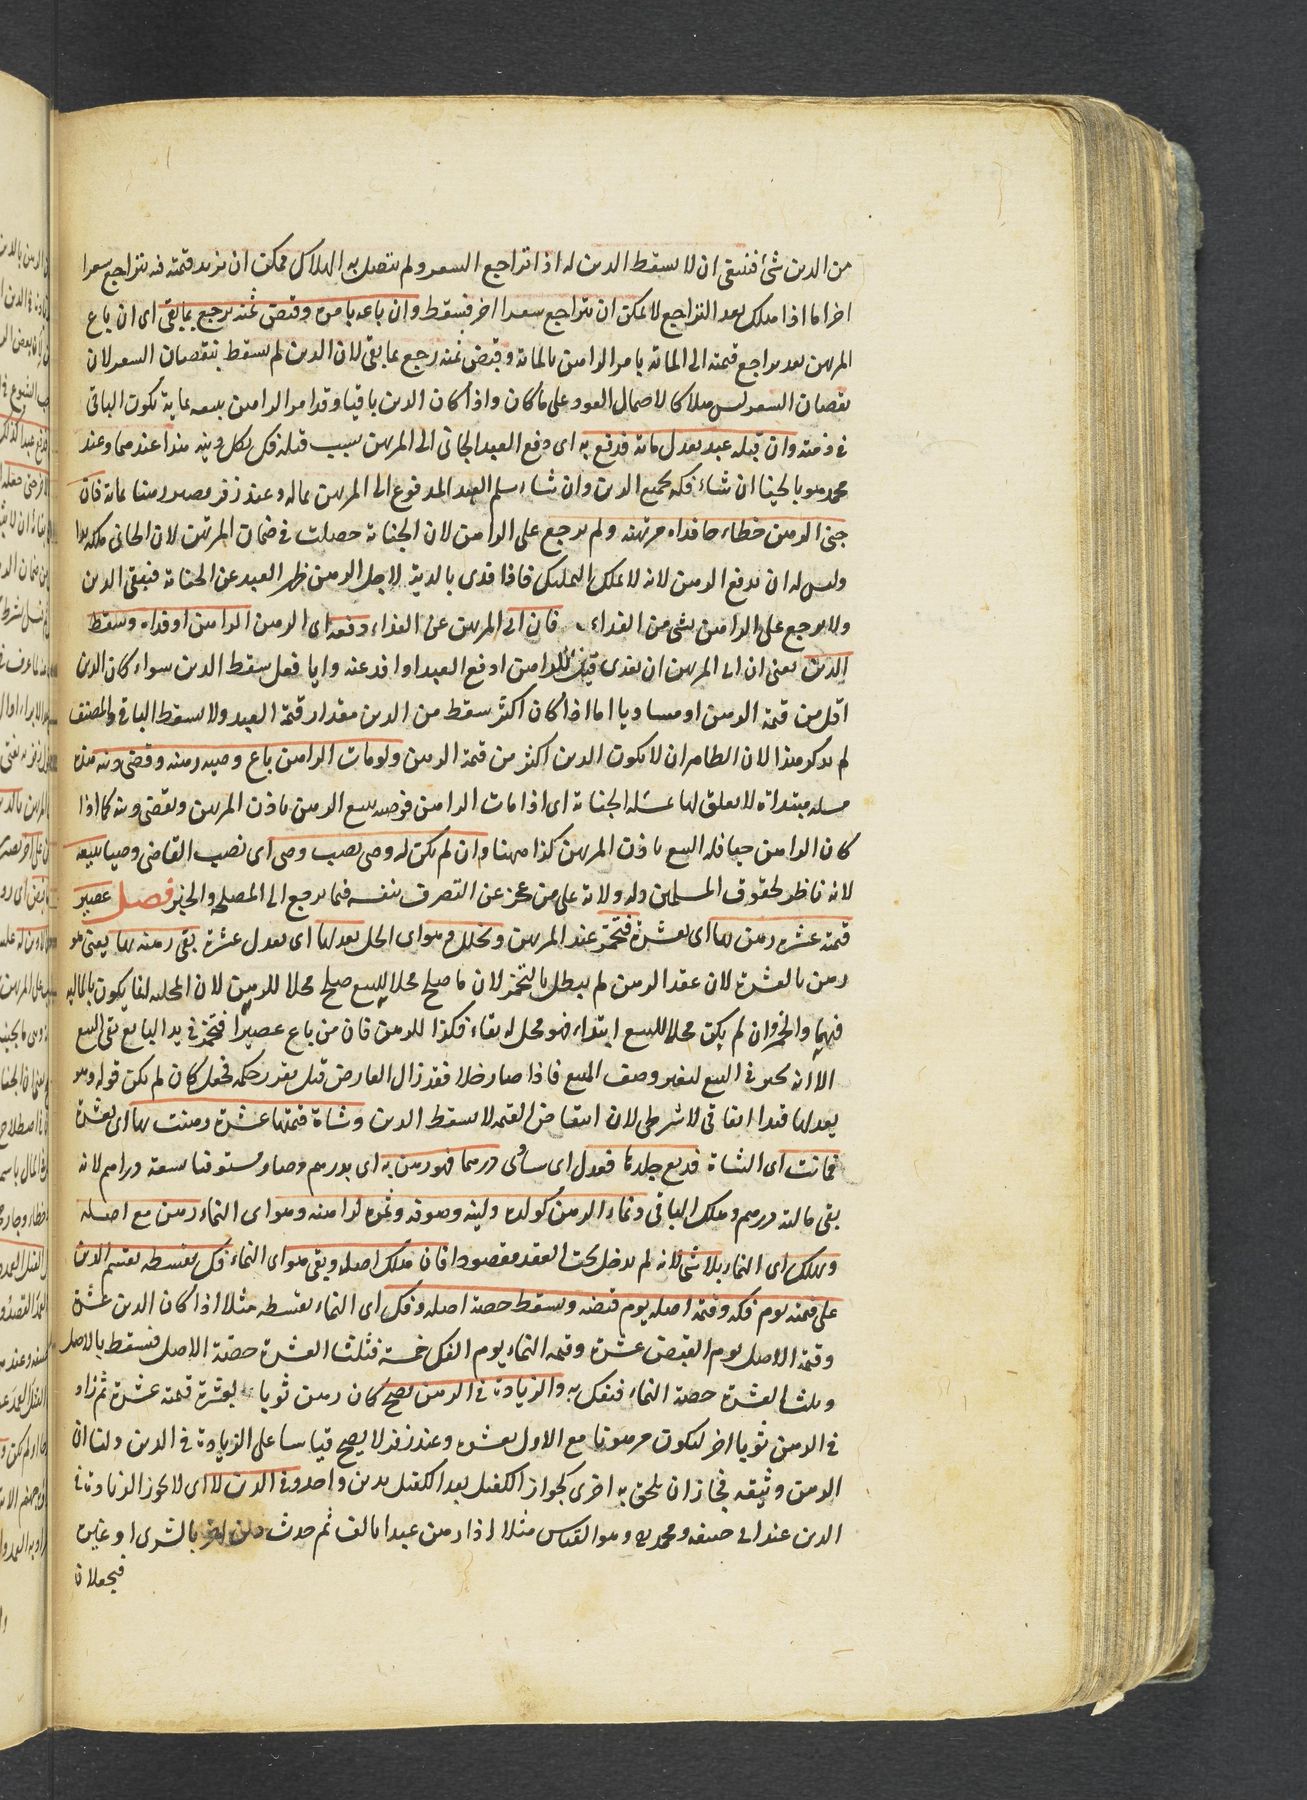 من الدين شئ فينبغى ان لا يسقط الدين له اذا تراجع السعر ولم يتصل به الهلاك يمكن ان يزيد قيمته فيه بتراجع سعرا
اخر اما اذا هلك بعد التراجع لا يمكن ان يتراجع سعرا اخر فيسقط وان باعه بامره وقبض ثمنه يرجع بما بقى اى ان باع
المرتهن بعد تراجع قيمته الى المائة بامر الراهن بالمائة وقبض ثمنه رجع بما بقى لان الدين لم يسقط بنقصان السعر لان
نقصان السعر ليس هلاكا لاحتمال العود على ما كان واذا كان الدين باقيا وقد امر الراهن ببيعه بماية يكون الباقى
فى ذمته وان قتله عبد يعدل مائة فدفع به اى دفع العبد الجانى الى المرتهن بسبب قتله فك بكل دينه هذا عندهما وعند
محمد هو بالخيار ان شاء فكه بجميع الدين وان شاء سلم العبد المدفوع الى المرتهن بماله وعند زفر يصير رهنا بمائة فان
جنى الرهن خطاء فداه مرتهنه ولم يرجع على الراهن لان الجناية حصلت فى ضمان المرتهن لان الجانى ملكه
وليس له ان يدفع الرهن لانه لا يملك التمليك فاذا فدى بالدية لاجل الرهن ظهر العبد عن الجناية فيبقى الدين
ولا يرجع على الراهن بشئ من الفداء فان ابى المرتهن عن الفداء دفعه اى الرهن الراهن او فداه وسقط
الدين يعنى ان ابى المرتهن ان يفدى قيل للراهن ادفع العبد او افد عنه وايا فعل سقط الدين سواء كان الدين
اقل من قيمة الرهن او مساويا اما اذا كان اكثر سقط من الدين مقدار قيمة العبد ولا يسقط الباقى والمصنف
لم يذكر هذا لان الظاهر ان لا يكون الدين اكثر من قيمة الرهن ولو مات الراهن باع وصيه رهنه وقضى دينه هذه
مسئلة مبتدأة لا تعلق لها بمسئلة الجناية اى اذا مات الراهن فوصيه يبيع الرهن باذن المرتهن ويقضى دينه كما اذا
كان الراهن حيا فله البيع باذن المرتهن كذا ههنا وان لم يكن له وصى نصب وصى اى نصب القاضى وصيا لبيعه
لانه ناظر لحقوق المسلمين وله ولاية على من عجز عن التصرف بنفسه فيما يرجع الى المصلح والخير فصل عصير
قيمته عشرة رهن بها اى بعشرة فتخمر عند المرتهن وتخلل وهو اى الخل يعدلها اى يعدل عشرة بقى رهنه بها يعنى هو
رهن بالعشرة لان عقد الرهن لم يبطل بالتخمر لان ما صلح محلا للبيع صلح محلا للرهن لان المحلية انما يكون بالمالية
فيهما والخمر وان لم يكن محلا للبيع ابتداء فهو محل له بقاء فكذا للرهن فان من باع عصيرا فتخمر فى يد البايع يبقى البيع
الا انه يخير فى البيع لتغير وصف المبيع فاذا صار خلا فقد زال العارض قبل تقرر حكمه فجعل كان لم يكن قوله وهو
يعدلها قيدا اتفاقى لا شرطى لان انتقاص القيمة لا يسقط الدين وشاة قيمتها عشرة رهنت بها اى بعشرة
فماتت اى الشاة فدبغ جلدها فعدل اى ساوى درهما فهو رهن به اى بدرهم وصار مستوفيا تسعة دراهم لانه
بقى مالية درهم وهلك الباقى ونماء الرهن كولده ولبنه وصوفه وثمره لراهنه وهو اى النماء رهن مع اصله
ويهلك اى النماء بلا شئ لانه لم يدخل تحت العقد مقصودا فان هلك اصله وبقى هو اى النماء فك بقسطه يقسم الدين
على قيمته يوم فكه وقيمة اصله يوم قبضه ويسقط حصة اصله وفك اى النماء بقسطه مثلا اذا كان الدين عشرة
وقيمة الاصل يوم القبض عشرة وقيمة النماء يوم الفك خمسة فثلثا العشرة حصة الاصل فيسقط بالاصل
وثلث العشرة حصة النماء فيفك به والزيادة فى الرهن يصح كان رهن ثوبا بعشرة قيمته عشرة ثم زاد
فى الرهن ثوبا اخر ليكون مرهونا مع الاول بعشره وعند زفر لا يصح قياسا على الزيادة فى الدين ولنا ان
الرهن وثيقة فجاز ان يلحق به اخرى كجواز الكفيل بعد الكفيل بدين واحد وفى الدين لا اى لا يجوز الزيادة فى
الدين عند ابى حنيفة ومحمد وهو القياس مثلا اذا رهن عبدا بالف ثم حدث دين اخر بالشرى او غيره
فيجعلان